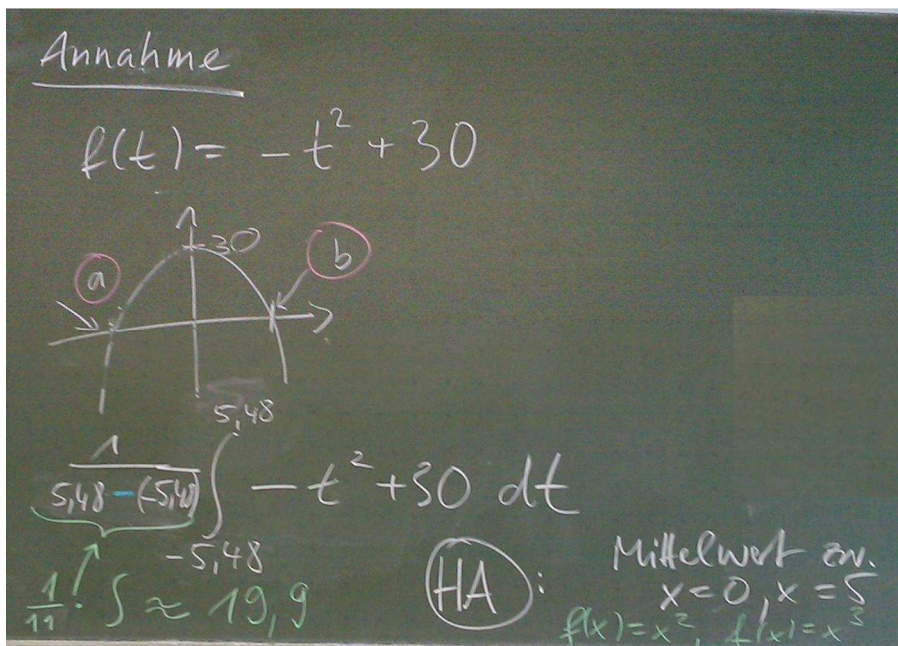 Annahme
f(t) = -t² + 30
30
a
b
1/(5,48 - (-5,48)) ∫_{-5,48}^{5,48} -t² + 30 dt
1/11 · ∫ ≈ 19,9
HA: Mittelwert zw.
x=0, x=5
f(x)=x², f(x)=x³